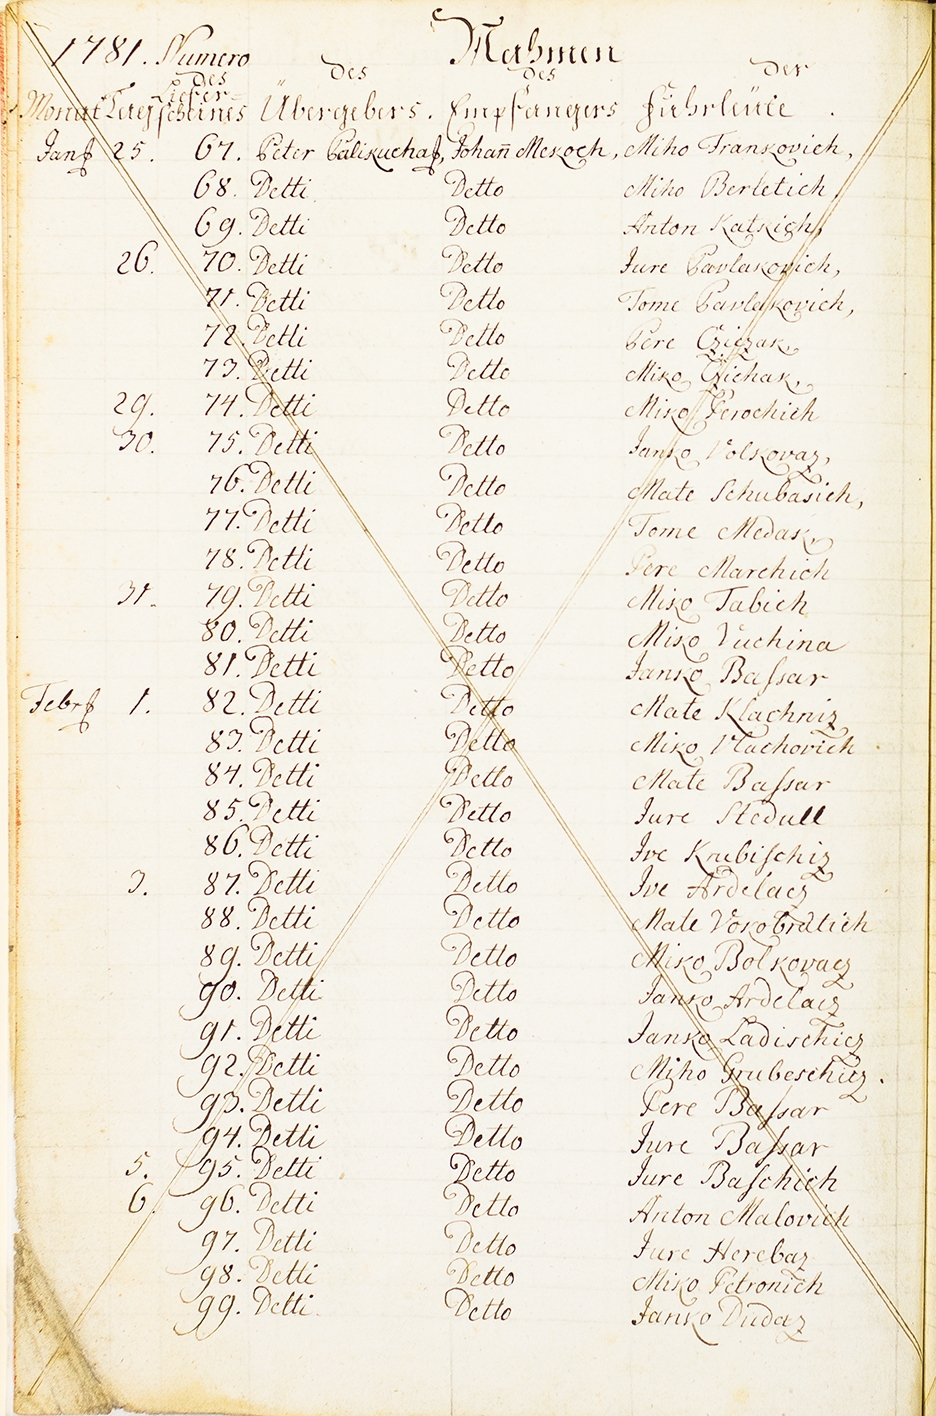 1781. Numero Nahmen
des des des der
Liefer-
Monat Tag scheines Übergebers. Empfangers Fuhrleüte.
25. 67. Peter Johañ Meskoch, Miho Frankovich,
68. Detti Detto Miho Berletich
69. Detti Detto Anton Katskich,
26. 70. Detti Detto Jure Pavlakovich,
71. Detti Detto Tome Pavlakovich,
72. Detti Detto Pere Cziczak,
73. Detti Detto Miko Czichak,
29. 74. Detti Detto Miko Perochich
30. 75. Detti Detto Janko Volkovaz,
76. Detti Detto Mate Schubasich,
77. Detti Detto Tome Medak,
78. Detti Detto Pere Marchich
31. 79. Detti Detto Miko Tabich
80. Detti Detto Miko Vuchina
81. Detti Detto Janko Baſsar
1. 82. Detti Detto Mate Klachniz
83. Detti Detto Miko Vlachovich
84. Detti Detto Mate Baſsar
85. Detti Detto Jure Stedull
86. Detti Detto Ive Krubiſchiz
3. 87. Detti Detto Ive Ardelacz
88. Detti Detto Mate Vokobratich
89. Detti Detto Miko Bolkovacz
90. Detti Detto Janko Ardelacz
91. Detti Detto Janko Ladischicz
92. Detti Detto Miho Grubeschicz.
93. Detti Detto Pere Baſsar
94. Detti Detto Jure Baſsar
5. 95. Detti Detto Jure Baſchich
6. 96. Detti Detto Anton Malovich
97. Detti Detto Jure Herebaz
98. Detti Detto Miko Petronich
99. Detti Detto Janko Dudaz